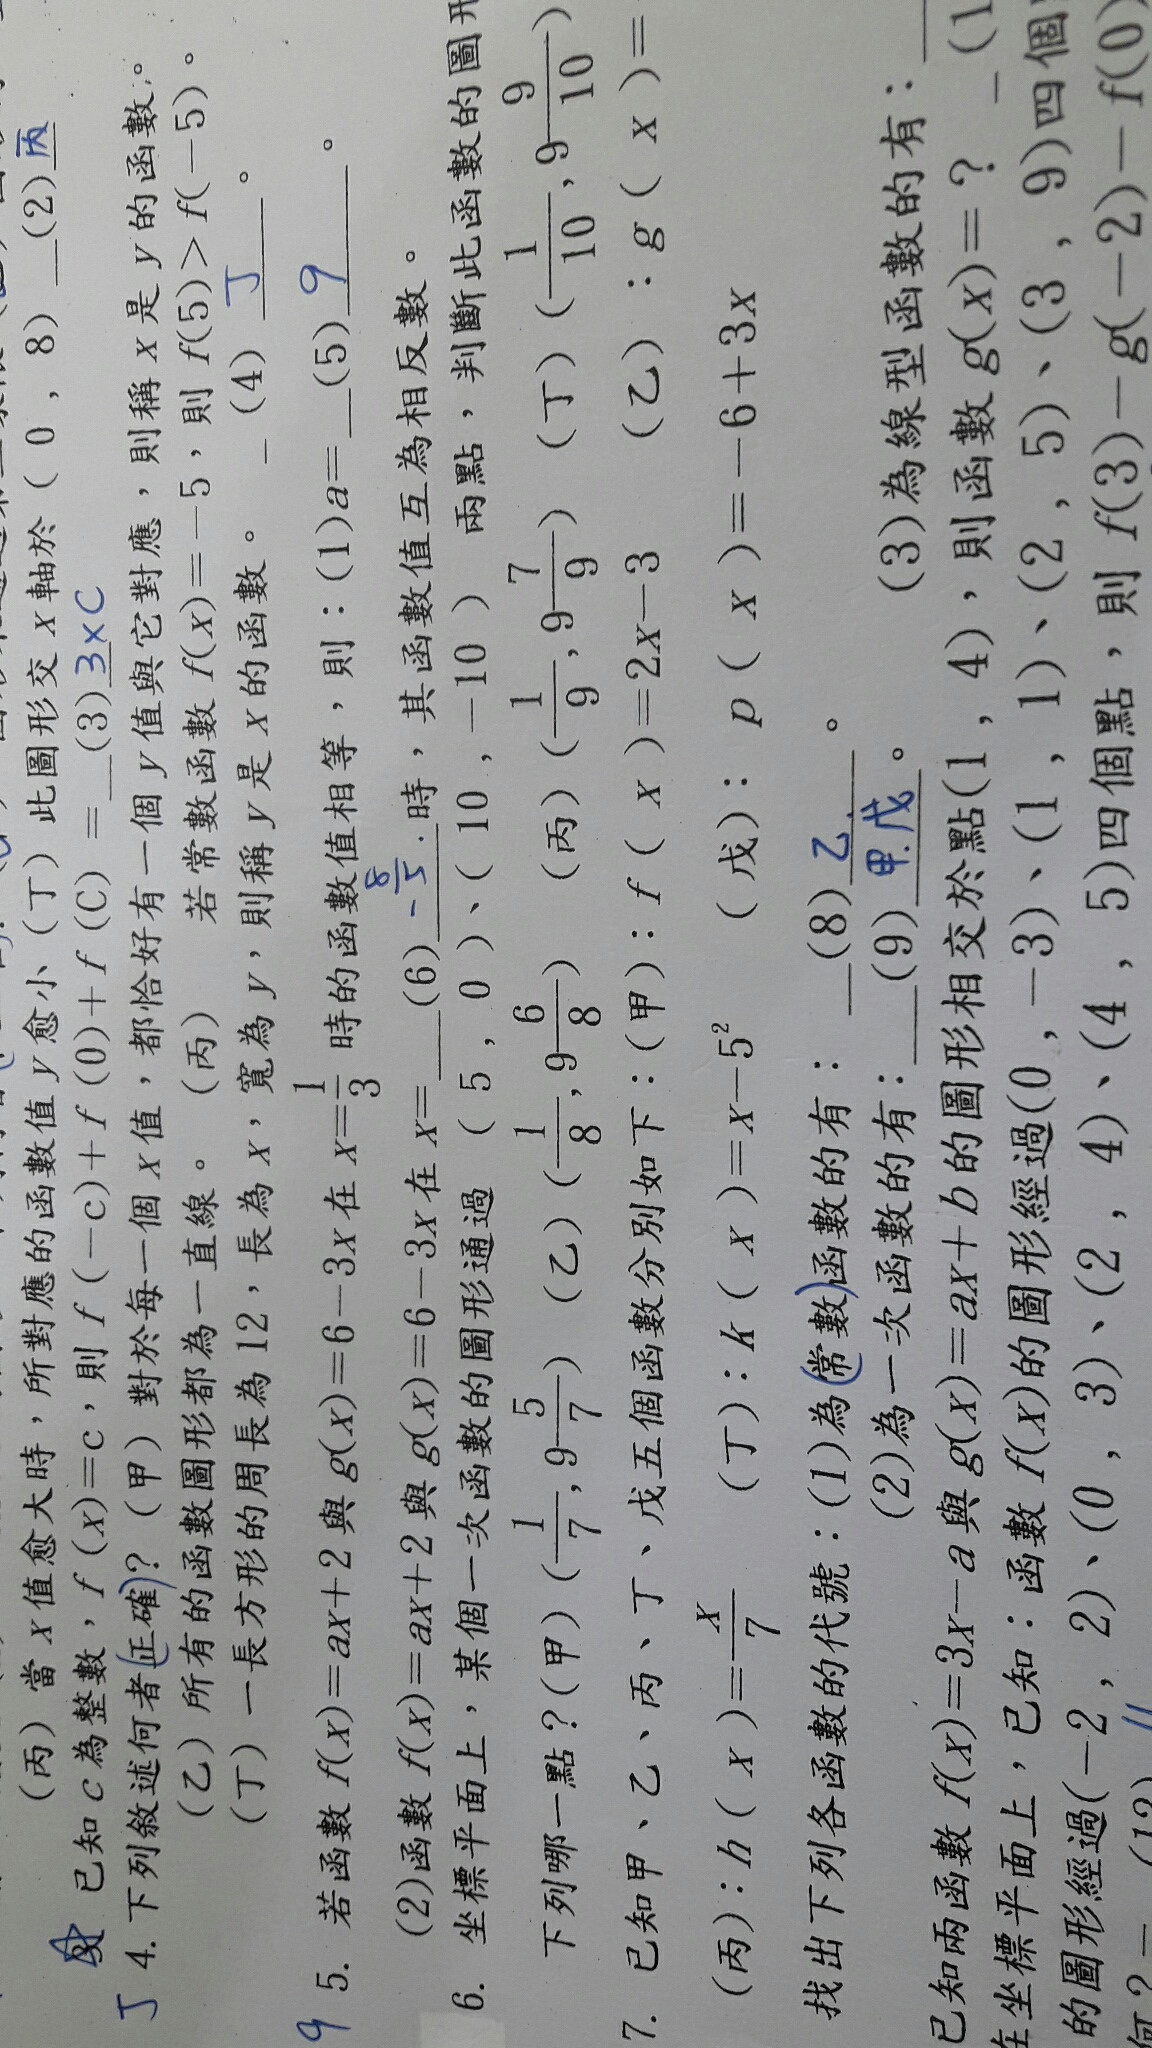 (丙) 當 x 值愈大時，所對應的函數值 y 愈小 (丁) 此圖形交 x 軸於 ( 0 , 8 ) __(2) 丙
已知 c 為整數，f (x)=c，則 f (－c)＋f (0)＋f (C) = __(3) 3×C
丁 4. 下列敘述何者正確？ (甲) 對於每一個 x 值，都恰好有一個 y 值與它對應，則稱 x 是 y 的函數。
(乙) 所有的函數圖形都為一直線。 (丙) 若常數函數 f(x)=－5，則 f(5)>f(－5)。
(丁) 一長方形的周長為 12，長為 x，寬為 y，則稱 y 是 x 的函數。 _(4) 丁 。
9 5. 若函數 f(x)=ax＋2 與 g(x)=6－3x 在 x=1/3 時的函數值相等，則：(1)a=__(5) 9 。
(2)函數 f(x)=ax＋2 與 g(x)=6－3x 在 x=__(6) -8/5 時，其函數值互為相反數。
6. 坐標平面上，某個一次函數的圖形通過 ( 5 , 0 )、( 10 , －10 ) 兩點，判斷此函數的圖形
下列哪一點？(甲) (1/7 , 9 5/7) (乙) (1/8 , 9 6/8) (丙) (1/9 , 9 7/9) (丁) (1/10 , 9 9/10)
7. 已知甲、乙、丙、丁、戊五個函數分別如下：(甲)：f ( x )=2x－3 (乙) ：g ( x )=
(丙)：h ( x )=x/7 (丁)：k ( x )=x－5² (戊)：p ( x )=－6＋3x
找出下列各函數的代號：(1)為常數函數的有：__(8) 乙 。 (3)為線型函數的有：
(2)為一次函數的有：__(9) 甲.戊 。
已知兩函數 f(x)=3x－a 與 g(x)=ax＋b 的圖形相交於點(1 , 4)，則函數 g(x)=？ _(1
在坐標平面上，已知：函數 f(x)的圖形經過(0 , －3)、(1 , 1)、(2 , 5)、(3 , 9)四個
的圖形經過(－2 , 2)、(0 , 3)、(2 , 4)、(4 , 5)四個點，則 f(3)－g(－2)－f(0)
何？_ (12) 11